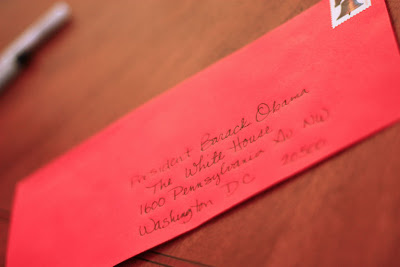 President Barack Obama
The White House
1600 Pennsylvania Av NW
Washington DC 20500